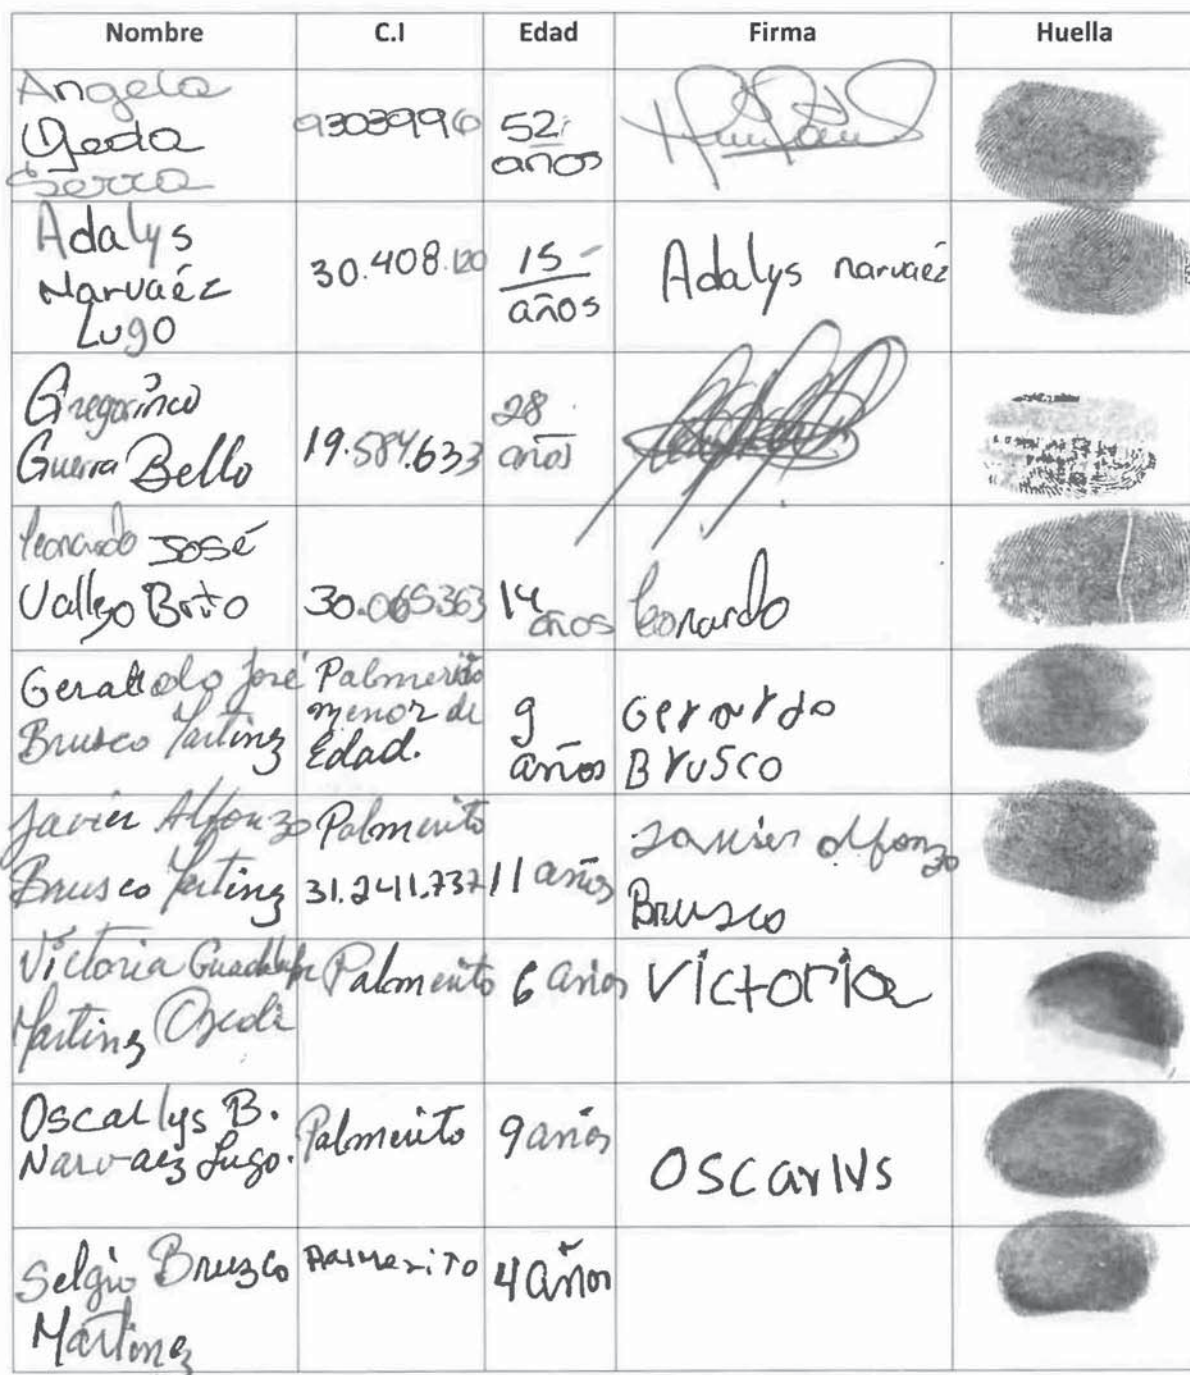 Nombre C.I Edad Firma Huella
Angela
Ojeda
Serra
9303996
52
años
Adalys
Narvaéz
Lugo
30.408.120
15
años
Adalys narvaéz
Guerra Bello
19.584.633
28
años
Leonardo José
Vallejo Brito
30.065.363
14
años
Leonardo
José
Brusco
Palmerito
menor de
Edad.
9
años
Gerardo
Brusco
Javier Alfonzo
Brusco
Palmerito
31.241.737
11 años
Javier Alfonzo
Brusco
Victoria Guadalupe
Palmerito
6 años
Victoria
Oscarlys B.
Narvaez Lugo.
Palmerito
9 años
Oscarlys
Selgio Brusco
Martinez
Palmerito
4 años